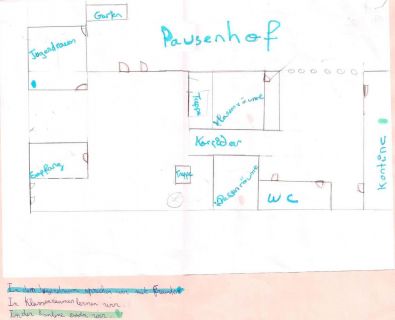 Garten
Pausenhof
Jugendraum
Treppe
Klassenräume
Korridor
Kontine
Empfang
Treppe
Klassenräume
WC
In dem Jugendraum spielen wir mit Freunden
In Klassenraumes lernen wir.
In der kontine essen wir.